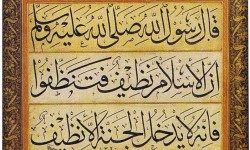 قال رسول الله صلى الله عليه وسلم
ان الاسلام نظيف فتنظفوا
فانه لا يدخل الجنة الا نظيف